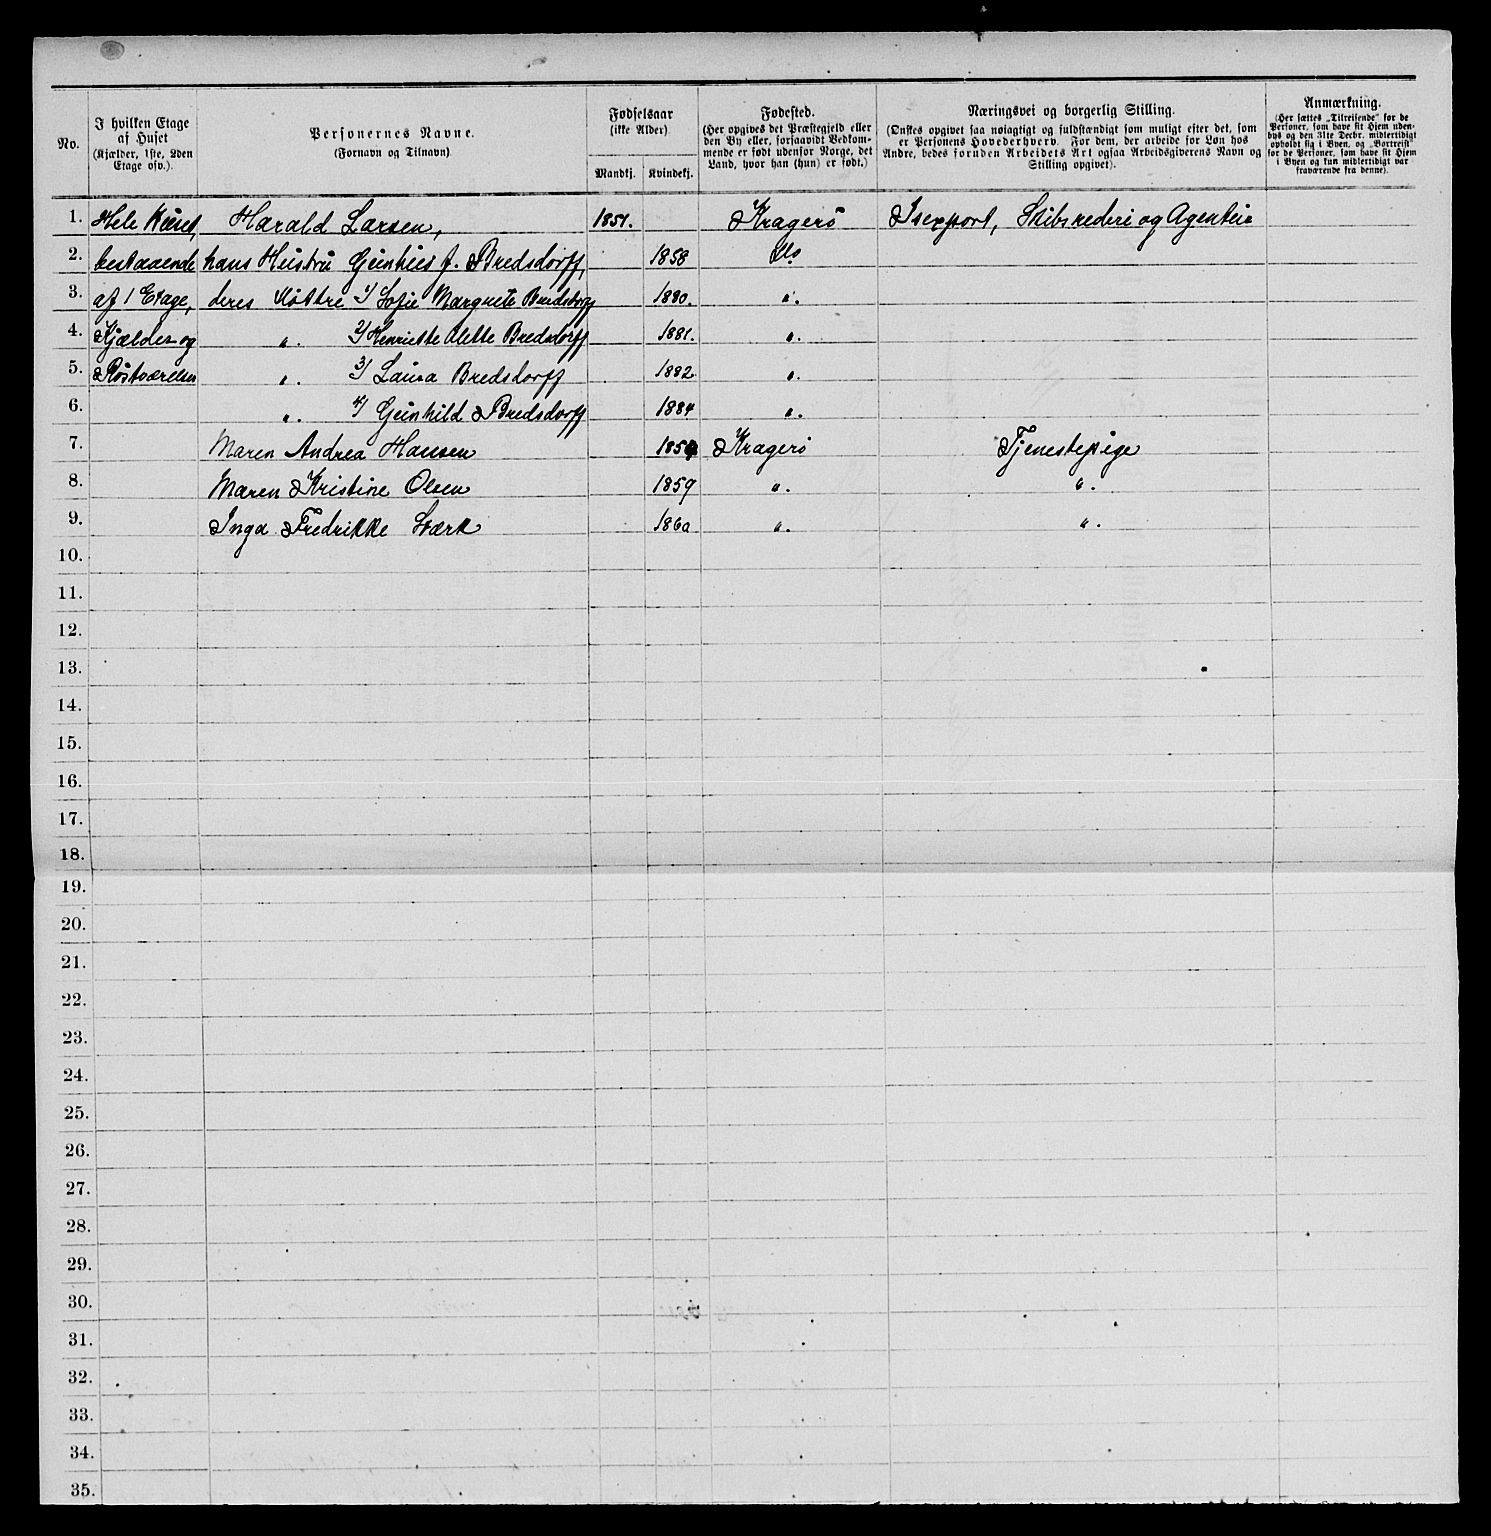 No.
I hvilken Etage af Huset (Kjælder, 1ste, 2den Etage osv.).
Personernes Navne. (Fornavn og Tilnavn)
Fødselsaar (ikke Alder).
Mandkj.
Kvindekj.
Fødested. (Her opgives det Præstegjeld eller den By eller, forsaavidt Vedkommende er født udenfor Norge, det Land, hvor han (hun) er født.)
Næringsvei og borgerlig Stilling. (Ønskes opgivet saa nøiagtigt og fuldstændigt som muligt efter det, som er Personens Hovederhverv. For dem, der arbeide for Løn hos Andre, bedes foruden Arbeidets Art ogsaa Arbeidsgiverens Navn og Stilling opgivet).
Anmærkning. (Her sættes „Tilreisende“ for de Personer, som have sit Hjem udenbys og den 31te Decbr. midlertidigt opholdt sig i Byen, og „Bortreist“ for de Personer, som have sit Hjem i Byen og kun midlertidigt var fraværende fra denne).
1. Hele Huset, Harald Larsen, 1851. Kragerö Isexport, Skibsrederi og Agentur
2. bestaaende hans Hustru f. Bredsdorff, 1858 Do
3. af 1 Etage, deres Döttre 1/ Sofie Margrete Bredsdorff 1880. ".
4. Kjælder og ". 2/ Henriette Alette Bredsdorff 1881. ".
5. ". 3/ Laura Bredsdorff 1882. ".
6. ". 4/ Gunhild Bredsdorff 1884 ".
7. Maren Andrea Hansen Kragerö Tjenestepige
8. Maren Kristine Olsen 1859 ". ".
9. Inga Fredrikke Stærk 1860 ". ".
10.
11.
12.
13.
14.
15.
16.
17.
18.
19.
20.
21.
22.
23.
24.
25.
26.
27.
28.
29.
30.
31.
32.
33.
34.
35.